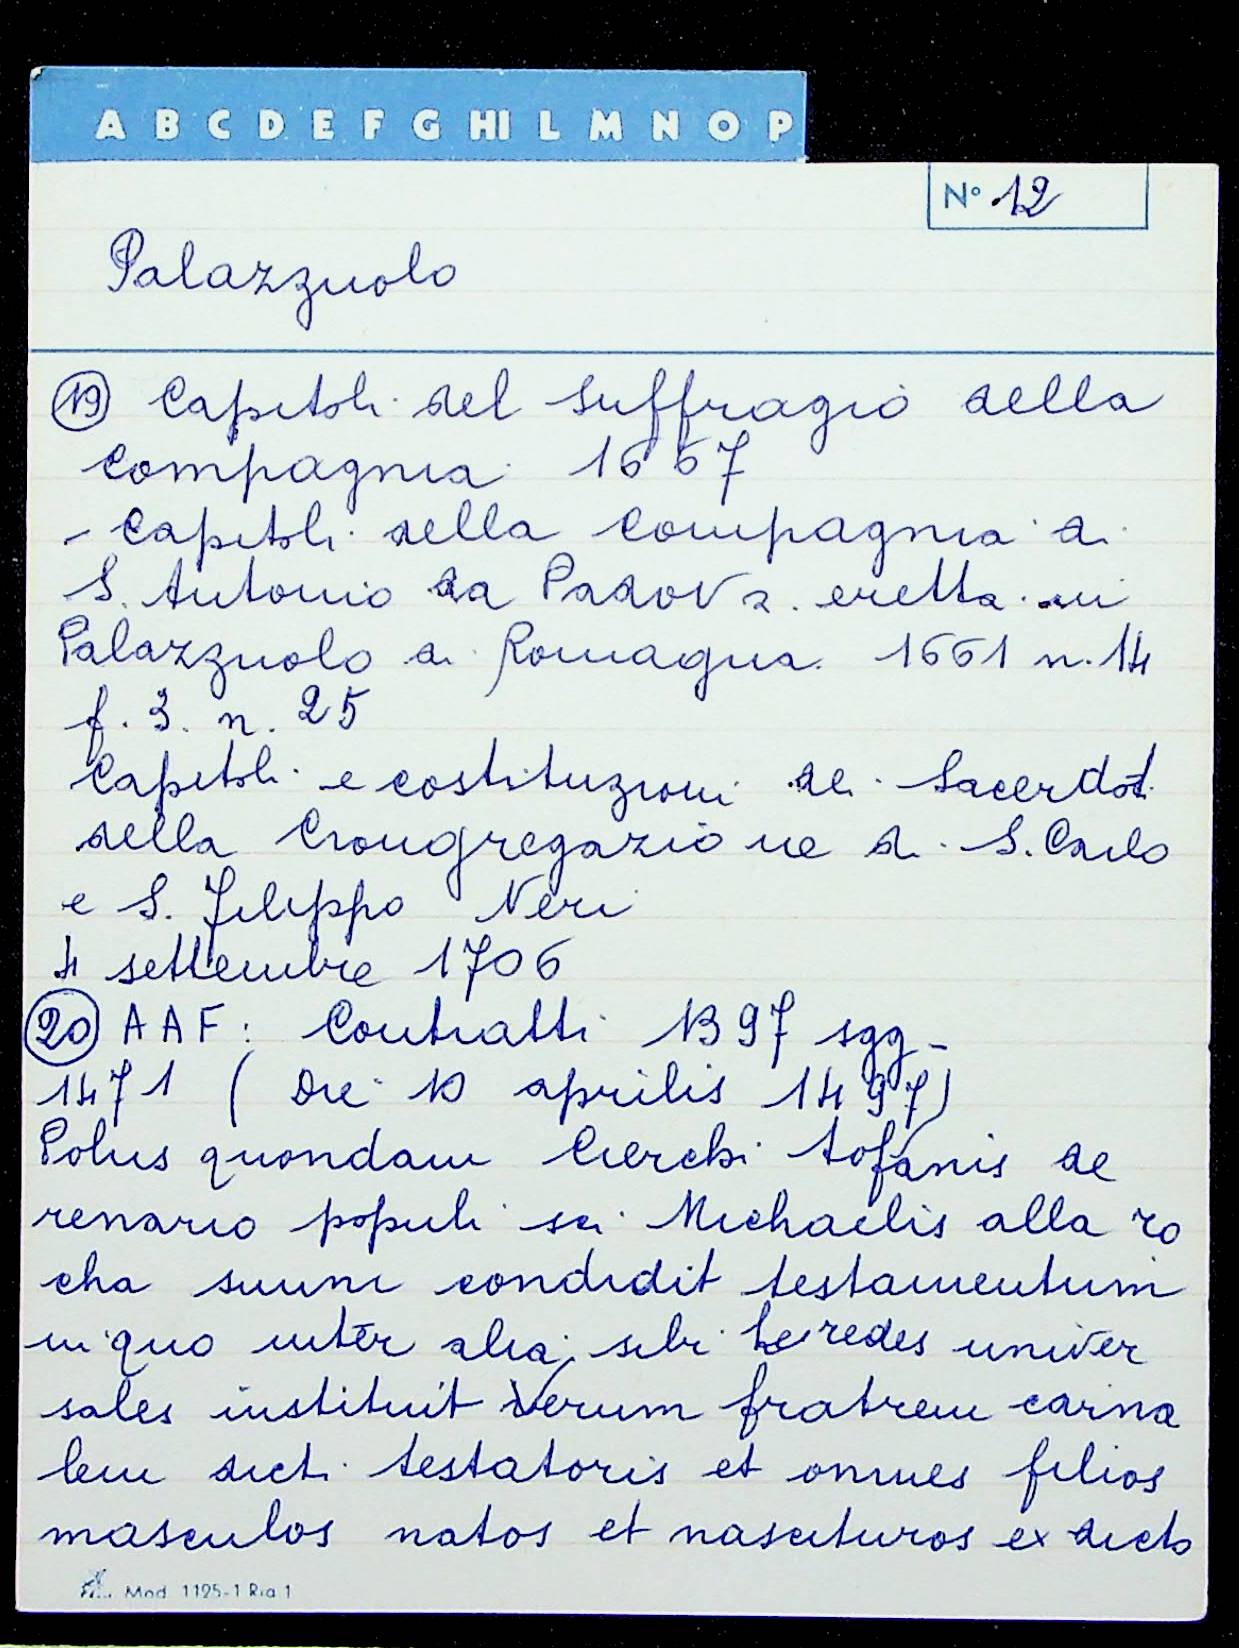 A B C D E F G HI L M N O P
N° 12
Palazzuolo
19 Capitoli del suffragio della
compagnia 1667
- Capitoli della compagnia di
S. Antonio da Padova eretta in
Palazzuolo di Romagna 1661 n. 14
f. 3. n. 25
Capitoli e costituzioni dei Sacerdoti
della Congregazione di S. Carlo
e S. Filippo Neri
4 settembre 1706
20 AAF: Contratti 1397 sgg-
1471 ( Die 10 aprilis 1497)
Polus quondam Cierchi Tofanis de
renario populi sci Michaelis alla ro
cha suum condidit testamentum
in quo inter alia, sibi heredes univer
sales instituit Verum fratrem carna
lem dicti testatoris et omnes filios
masculos natos et nascituros ex dicto
Mod. 1125-1 Riga 1